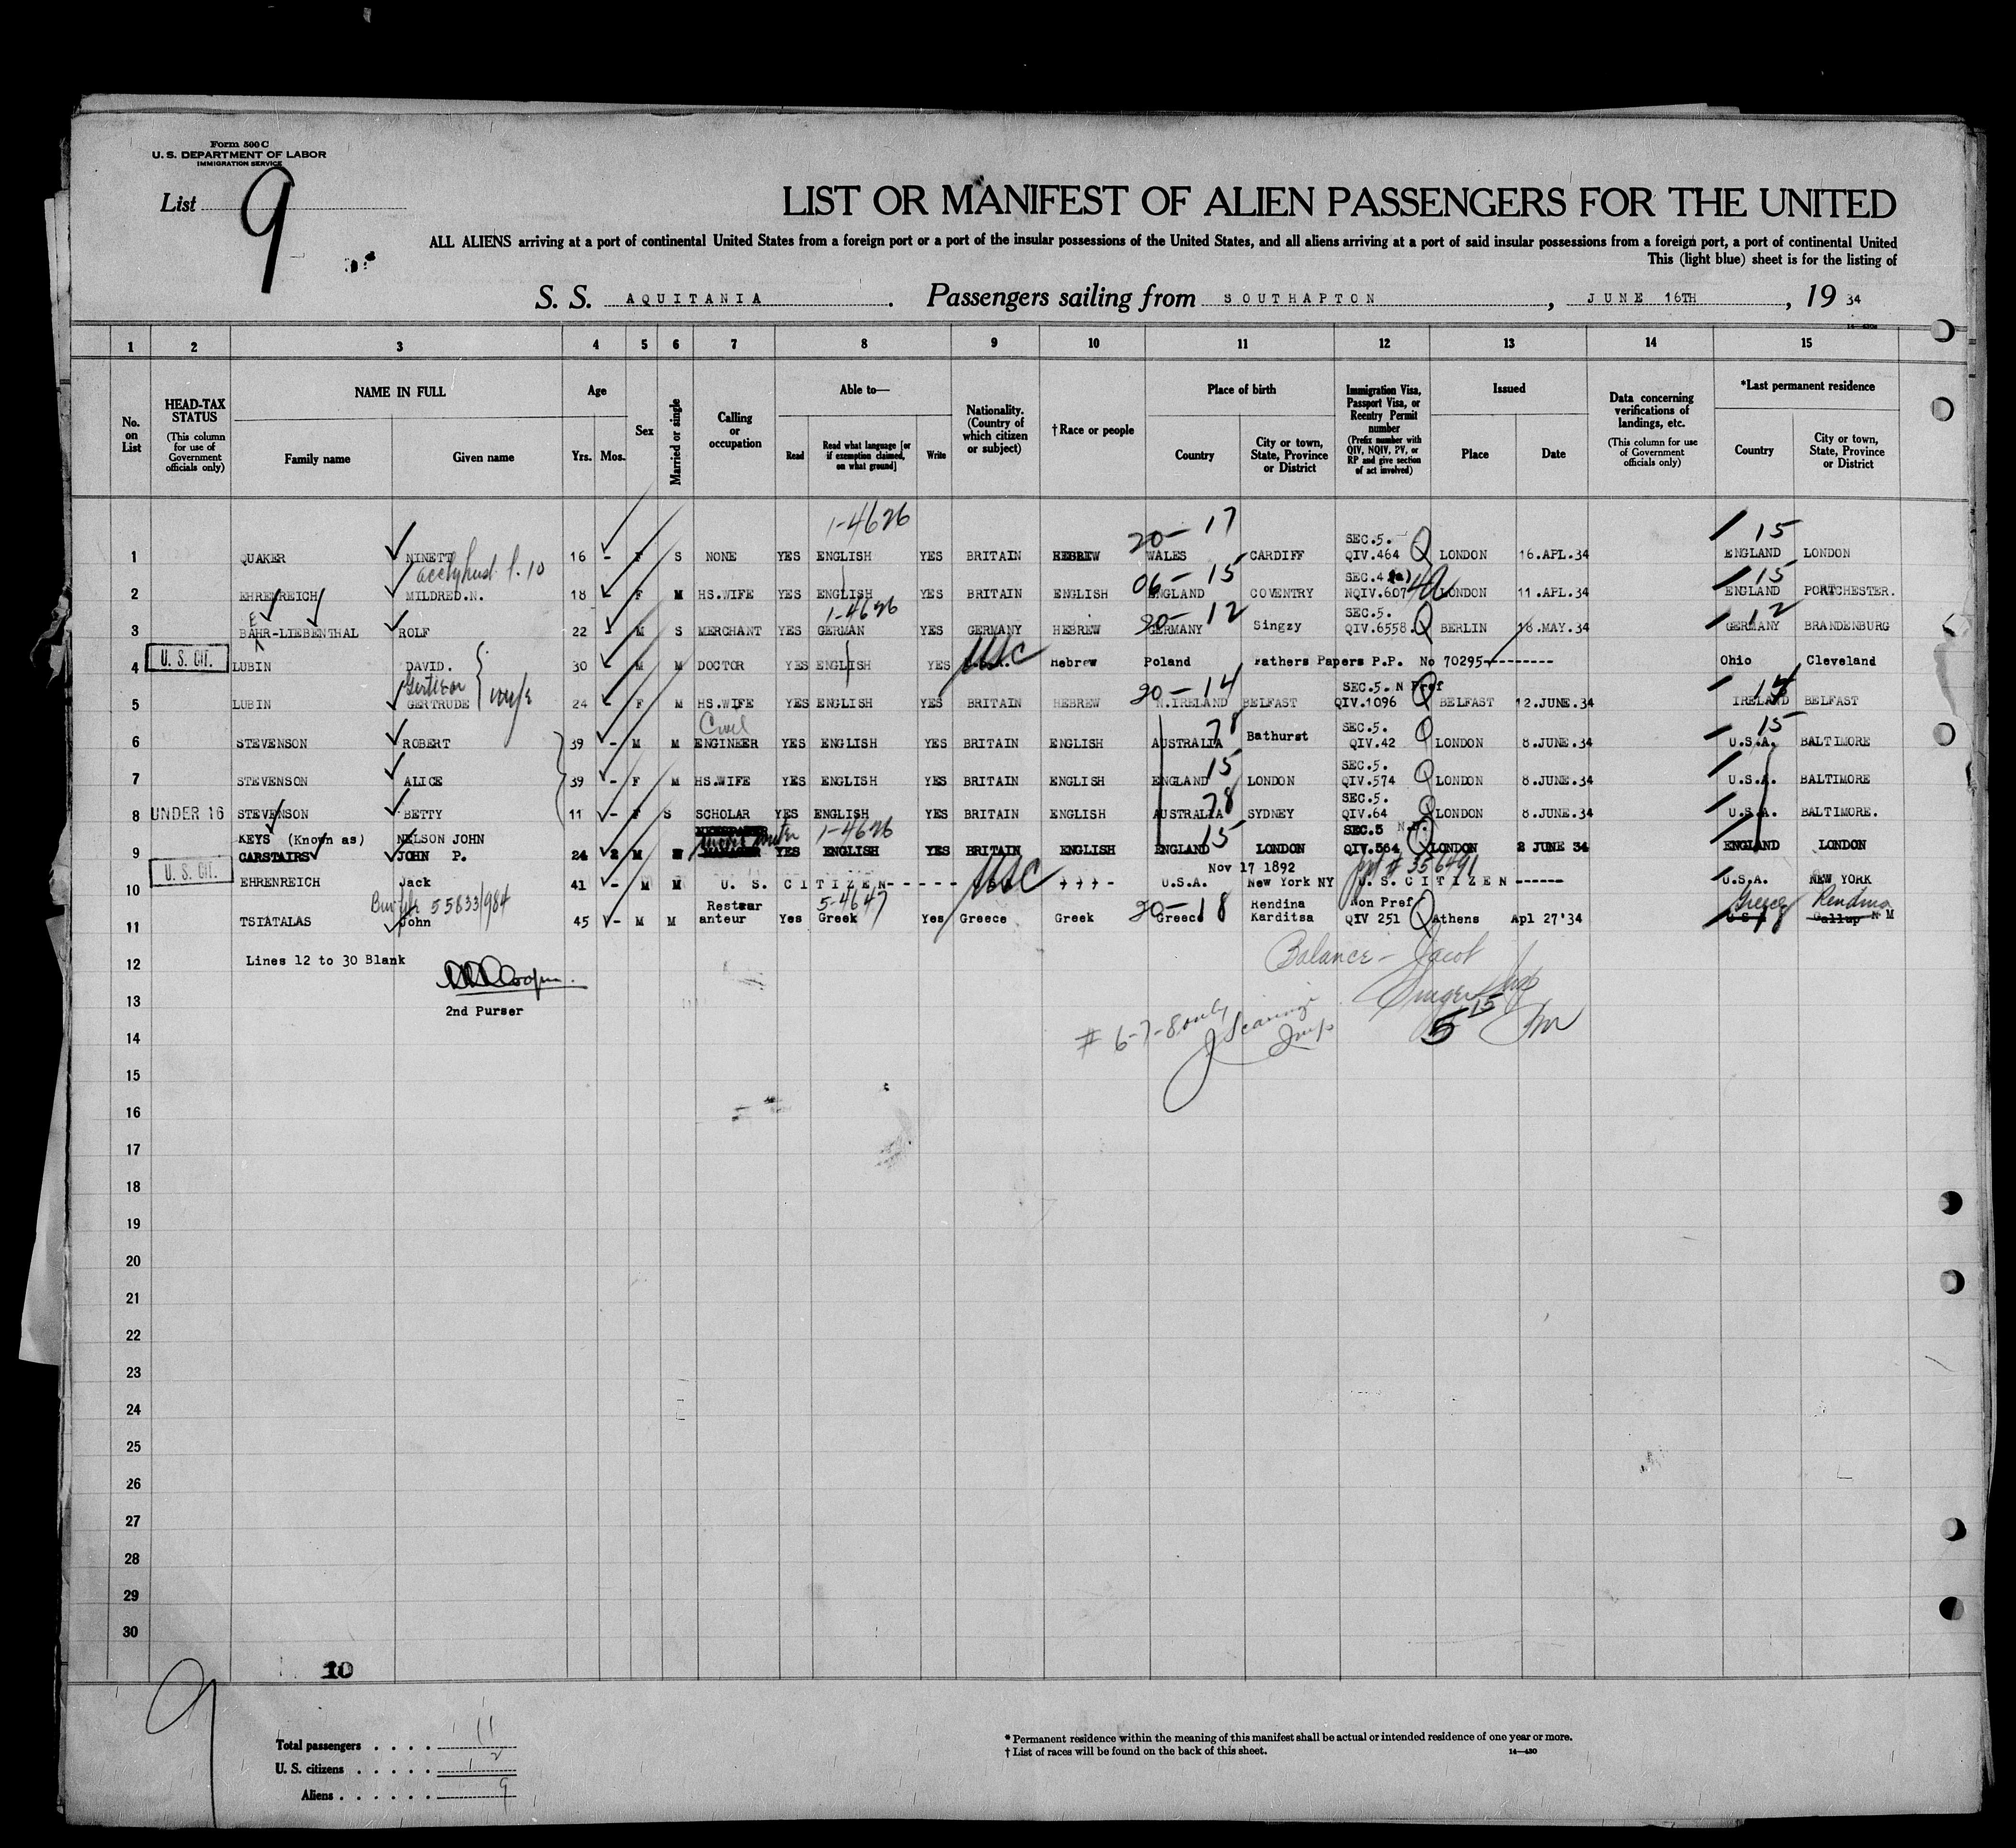 Form 500 C
U. S. DEPARTMENT OF LABOR
IMMIGRATION SERVICE
List 9
LIST OR MANIFEST OF ALIEN PASSENGERS FOR THE UNITED
ALL ALIENS arriving at a port of continental United States from a foreign port or a port of the insular possessions of the United States, and all aliens arriving at a port of said insular possessions from a foreign port, a port of continental United
This (light blue) sheet is for the listing of
S. S. AQUITANIA . Passengers sailing from SOUTHAPTON , JUNE 16TH , 19 34
1 2 3 4 5 6 7 8 9 10 11 12 13 14 15
No. on List
HEAD-TAX STATUS (This column for use of Government officials only)
NAME IN FULL
Family name Given name
Age
Yrs. Mos.
Sex
Married or single
Calling or occupation
Able to—
Read Read what language [or if exemption claimed, on what ground] Write
Nationality. (Country of which citizen or subject)
†Race or people
Place of birth
Country City or town, State, Province or District
Immigration Visa, Passport Visa, or Reentry Permit number (Prefix number with QIV, NQIV, PV, or RP and give section of act involved)
Issued
Place Date
Data concerning verifications of landings, etc. (This column for use of Government officials only)
*Last permanent residence
Country City or town, State, Province or District
1-4626 20-17 SEC.5. 15
1 QUAKER NINETT 16 - F S NONE YES ENGLISH YES BRITAIN HEBREW WALES CARDIFF QIV.464 Q LONDON 16.APL.34 ENGLAND LONDON
06-15 SEC.4 (a) 15
2 EHRENREICH MILDRED.N. 18 F M HS.WIFE YES ENGLISH YES BRITAIN ENGLISH ENGLAND COVENTRY NQIV.607 LONDON 11.APL.34 ENGLAND PORTCHESTER.
1-4626 20-12 SEC.5. 12
3 BAHR-LIEBENTHAL ROLF 22 - M S MERCHANT YES GERMAN YES GERMANY HEBREW GERMANY Singzy QIV.6558. Q BERLIN 18.MAY.34 GERMANY BRANDENBURG
4 U. S. CIT. LUBIN DAVID. 30 M M DOCTOR YES ENGLISH YES USC Hebrew Poland Fathers Papers P.P. No 70295--------- Ohio Cleveland
wife 20-14 SEC.5. N Pref
5 LUBIN GERTRUDE 24 F M HS.WIFE YES ENGLISH YES BRITAIN HEBREW N.IRELAND BELFAST QIV.1096 Q BELFAST 12.JUNE.34 IRELAND BELFAST
Civil 78 SEC.5. 15
6 STEVENSON ROBERT 39 - M M ENGINEER YES ENGLISH YES BRITAIN ENGLISH AUSTRALIA Bathurst QIV.42 Q LONDON 8.JUNE.34 U.S.A. BALTIMORE
15 SEC.5.
7 STEVENSON ALICE 39 - F M HS.WIFE YES ENGLISH YES BRITAIN ENGLISH ENGLAND LONDON QIV.574 Q LONDON 8.JUNE.34 U.S.A. BALTIMORE
78 SEC.5.
8 UNDER 16 STEVENSON BETTY 11 - F S SCHOLAR YES ENGLISH YES BRITAIN ENGLISH AUSTRALIA SYDNEY QIV.64 Q LONDON 8.JUNE.34 U.S.A. BALTIMORE.
KEYS (Known as) NELSON JOHN 1-4626 15 SEC.5
9 CARSTAIRS JOHN P. 24 2 M MANAGER YES ENGLISH YES BRITAIN ENGLISH ENGLAND LONDON QIV.564 Q LONDON 2 JUNE 34 ENGLAND LONDON
Nov 17 1892 ppt # 356491
10 U. S. CIT. EHRENREICH Jack 41 - M M U. S. CITIZEN----- USC New York NY U.S.A. U. S. CITIZEN ------ U.S.A. NEW YORK
55833/984 Restaur 5-4647 20-18 Rendina Non Pref Greece Rendina
11 TSIATALAS John 45 - M M anteur Yes Greek Yes Greece Greek Greece Karditsa QIV 251 Q Athens Apl 27'34 U S A Gallup N M
12 Lines 12 to 30 Blank
Balance - Jacob
13 2nd Purser
# 6-7-8 only
14
15
16
17
18
19
20
21
22
23
24
25
26
27
28
29
30
10
9
Total passengers . . . . 11
U. S. citizens . . . . . 2
Aliens . . . . . . 9
* Permanent residence within the meaning of this manifest shall be actual or intended residence of one year or more.
† List of races will be found on the back of this sheet. 14—430